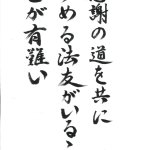 謝の道を共に
める法友がいる、
が有難い